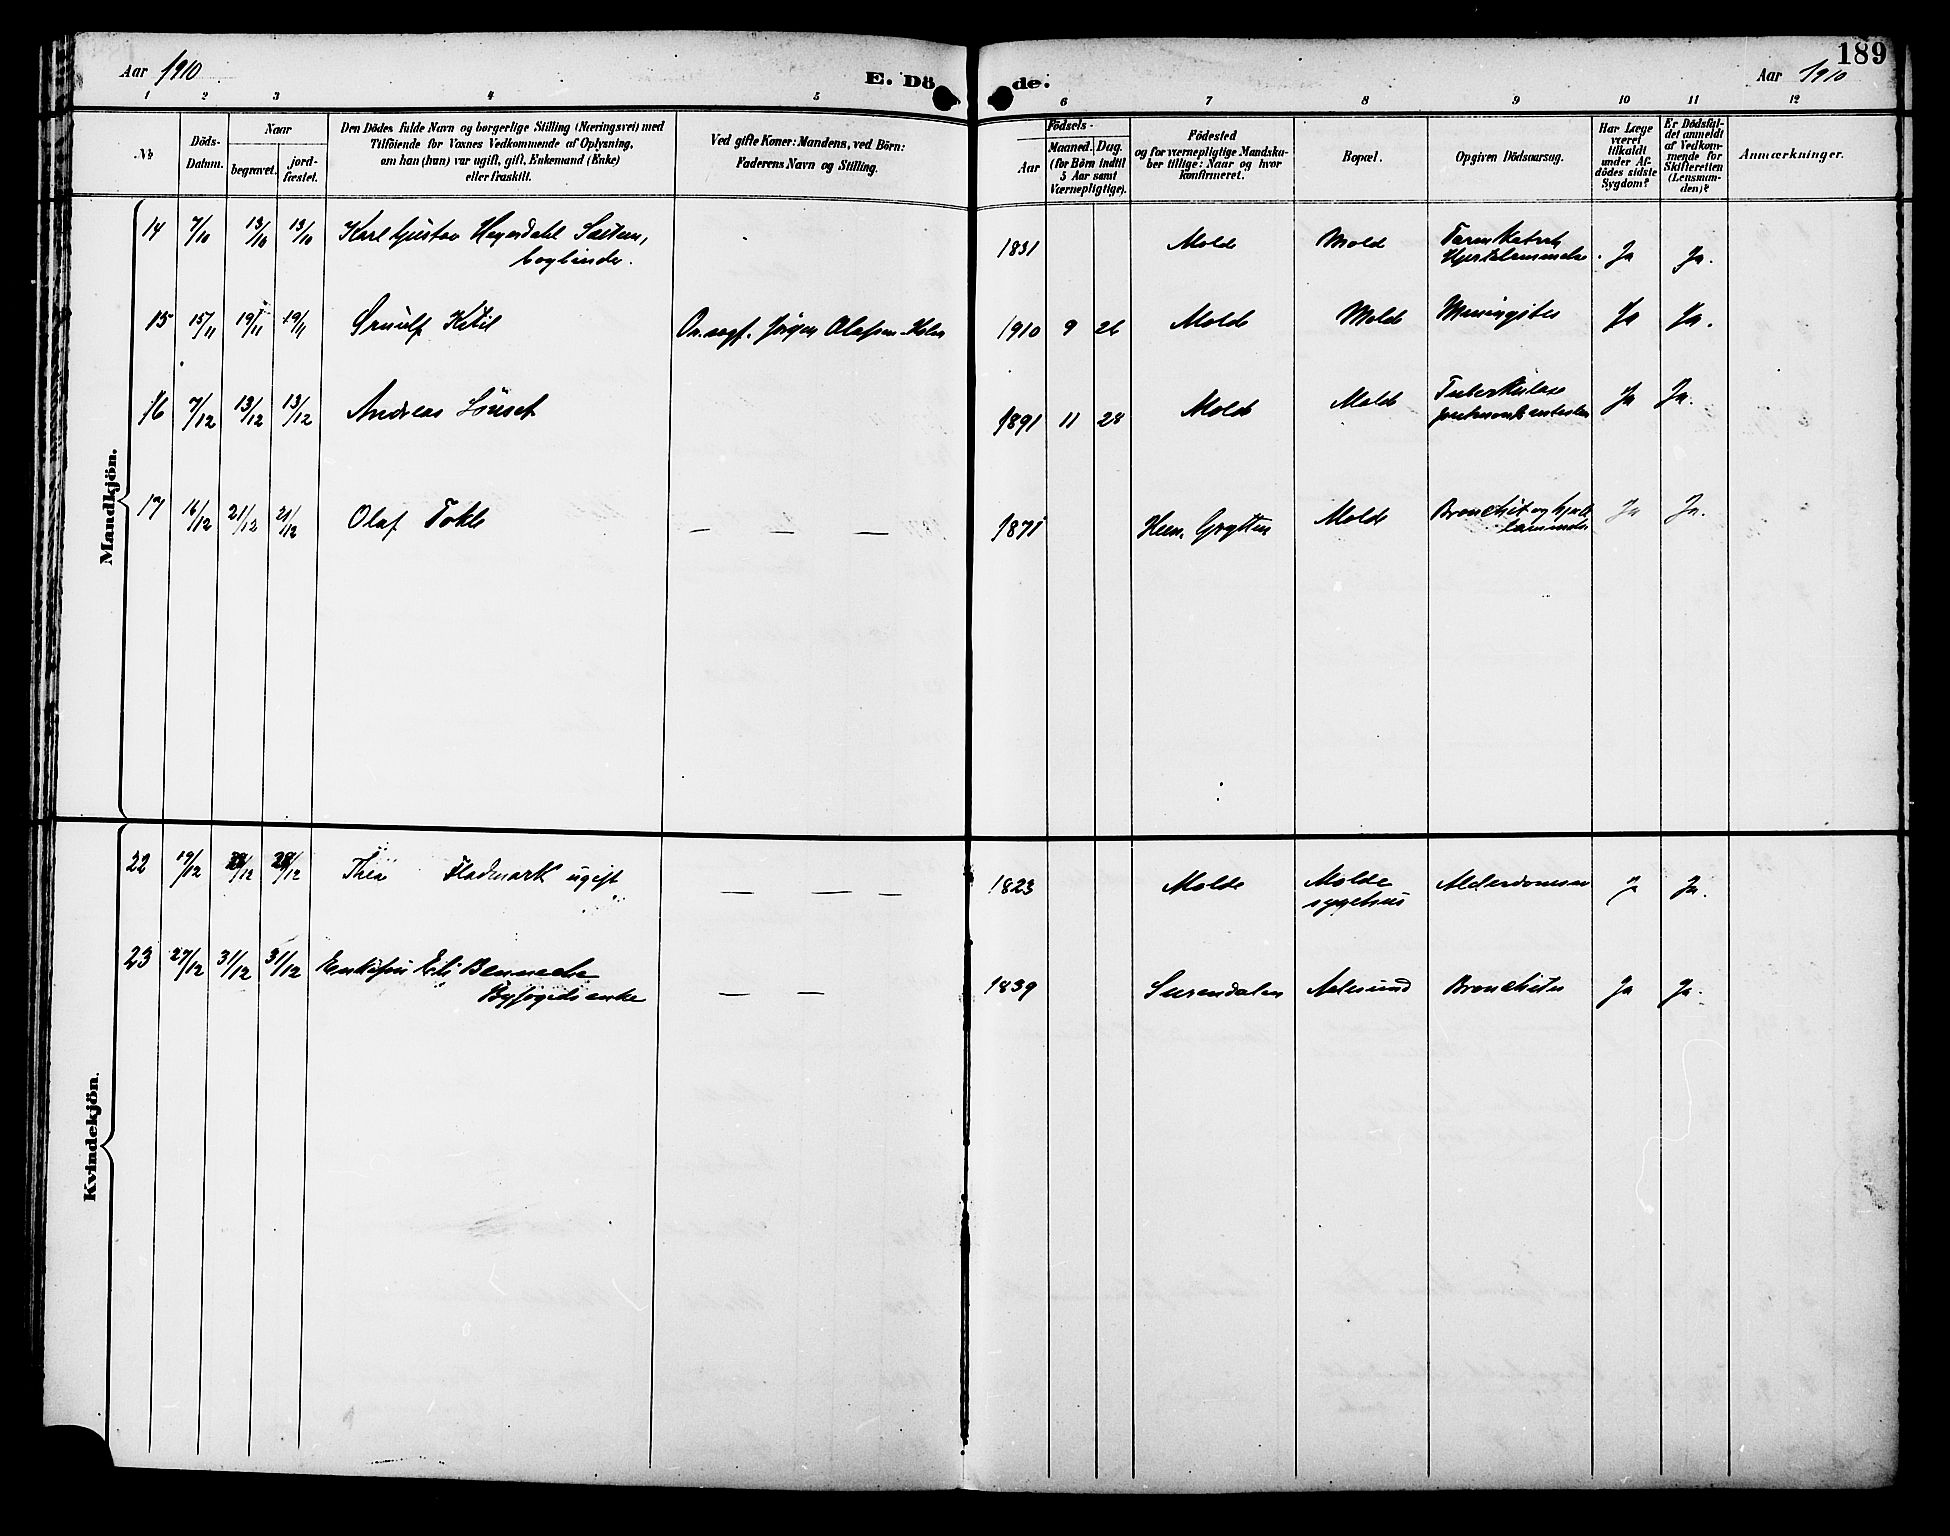 Aar 1910
E. Döde.
Aar 1910
189
1 2 3 4 5 6 7 8 9 10 11 12
No
Döds-
Datum.
Naar
begravet.
jord-
fæstet.
Den Dödes fulde Navn og borgerlige Stilling (Næringsvei) med
Tilföiende for Voxnes Vedkommende af Oplysning,
om han (hun) var ugift, gift, Enkemand (Enke)
eller fraskilt.
Ved gifte Koner: Mandens, ved Börn:
Faderens Navn og Stilling.
Födsels-
Aar
Maaned. Dag.
(for Börn indtil
5 Aar samt
Værnepligtige).
Födested
og for værnepligtige Mandska-
ber tillige: Naar og hvor
konfirmeret.
Bopæl.
Opgiven Dödsaarsag.
Har Læge
været
tilkaldt
under Af-
dödes sidste
Sygdom?
Er Dödsfal-
det anmeldt
af Vedkom-
mende for
Skifteretten
(Lensman-
den)?
Anmærkninger.
Mandkjön.
14 7/10 13/10 13/10 Karl Gustav 1831 Molde Molde Ja Ja.
bogbinder.
15 15/11 19/11 19/11 Jörgen 1910 9 26 Molde Molde Meningites Ja Ja.
16 7/12 13/12 13/12 Andreas Löuset 1891 11 28 Molde Molde Tuberkulose Ja Ja.
17 16/12 21/12 21/12 Olaf Tokle — — — 1871 Heen, Grytten Molde Bronchit og hjert Ja Ja.
lammelse
Kvindekjön.
22 19/12 Thea Fladmark ugift — — — 1823 Molde Molde Alderdomssv Ja.
sygehus
23 27/12 31/12 31/12 Enkefru Eli Benneche — — 1839 Surendalen Aalesund Bronchites Ja Ja.
Byfogedsenke